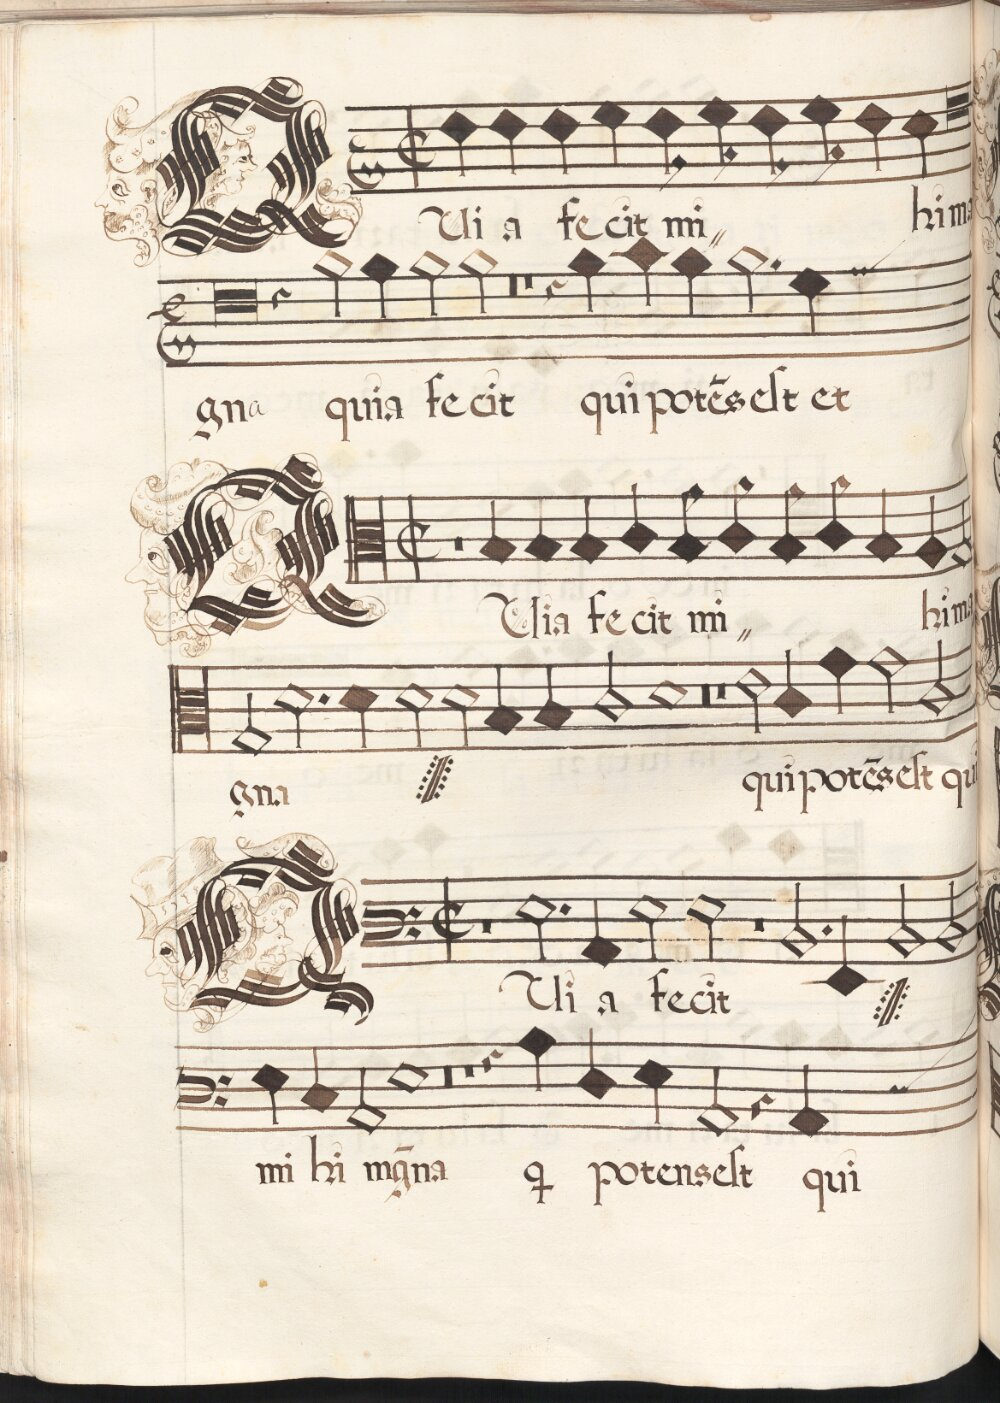 QUi a fecit mi〃 hi ma
gna quia fecit qui potēs est et
QUia fecit mi〃 hi ma
gna qui potēs est qui
QUi a fecit
mi hi mḡna ꝗ potens est qui